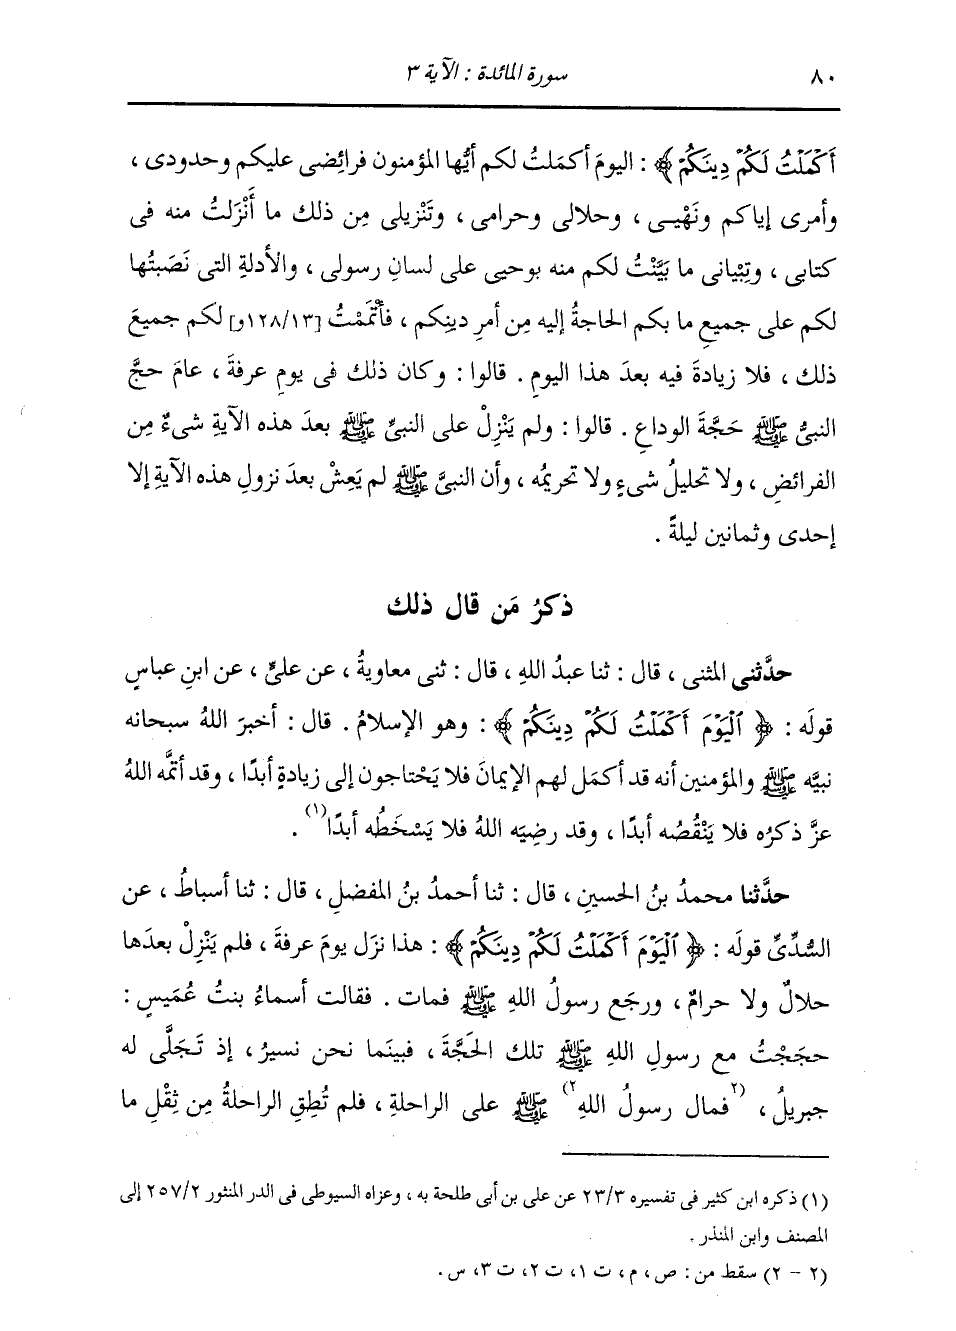 ٨٠ سورة المائدة : الآية ٣
أَكْمَلْتُ لَكُمْ دِينَكُمْ﴾ : اليومَ أكمَلتُ لكم أيُّها المؤمنون فرائِضى عليكم وحدودى ،
وأمرى إياكم ونَهْيى ، وحلالى وحرامى ، وتَنْزيلى مِن ذلك ما أَنْزَلتُ منه فى
كتابى ، وتِبْيانى ما بَيَّنْتُ لكم منه بوحيى على لسانِ رسولى ، والأدلةِ التى نَصَبتُها
لكم على جميعِ ما بكم الحاجةُ إليه مِن أمرِ دينِكم ، فأتْمَمْتُ [١٢٨/١٣و] لكم جميعَ
ذلك ، فلا زيادةَ فيه بعدَ هذا اليومِ . قالوا : وكان ذلك فى يومِ عرفةَ ، عامَ حجَّ
النبىُّ ﷺ حَجَّةَ الوداعِ . قالوا : ولم يَنْزِلْ على النبىِّ ﷺ بعدَ هذه الآيةِ شىءٌ مِن
الفرائضِ ، ولا تحليلُ شىءٍ ولا تحريمُه ، وأن النبىَّ ﷺ لم يَعِشْ بعدَ نزولِ هذه الآيةِ إلا
إحدى وثمانين ليلةً .
ذكرُ مَن قال ذلك
حدَّثنى المثنى ، قال : ثنا عبدُ اللهِ ، قال : ثنى معاويةُ ، عن علىٍّ ، عن ابنِ عباسٍ
قولَه : ﴿ ٱلْيَوْمَ أَكْمَلْتُ لَكُمْ دِينَكُمْ ﴾ : وهو الإسلامُ . قال : أخبرَ اللهُ سبحانه
نبيَّه ﷺ والمؤمنين أنه قد أكمَل لهم الإيمانَ فلا يَحْتاجون إلى زيادةٍ أبدًا ، وقد أتمَّه اللهُ
عزَّ ذكرُه فلا يَنْقُصُه أبدًا ، وقد رضِيَه اللهُ فلا يَسْخَطُه أبدًا(١) .
حدَّثنا محمدُ بنُ الحسينِ ، قال : ثنا أحمدُ بنُ المفضلِ ، قال : ثنا أسباطُ ، عن
السُّدِّىِّ قولَه : ﴿ ٱلْيَوْمَ أَكْمَلْتُ لَكُمْ دِينَكُمْ﴾ : هذا نزَل يومَ عرفةَ ، فلم يَنْزِلْ بعدَها
حلالٌ ولا حرامٌ ، ورجَع رسولُ اللهِ ﷺ فمات . فقالت أسماءُ بنتُ عُمَيسٍ :
حجَجْتُ مع رسولِ اللهِ ﷺ تلك الحَجَّةَ ، فبينَما نحن نسيرُ ، إذ تَجَلَّى له
جبريلُ ، (٢فمال رسولُ اللهِ٢) ﷺ على الراحلةِ ، فلم تُطِقِ الراحلةُ مِن ثِقْلِ ما
(١) ذكره ابن كثير فى تفسيره ٢٣/٣ عن على بن أبى طلحة به ، وعزاه السيوطى فى الدر المنثور ٢٥٧/٢ إلى
المصنف وابن المنذر .
(٢ - ٢) سقط من : ص ، م ، ت ١، ت ٢، ت ٣، س .